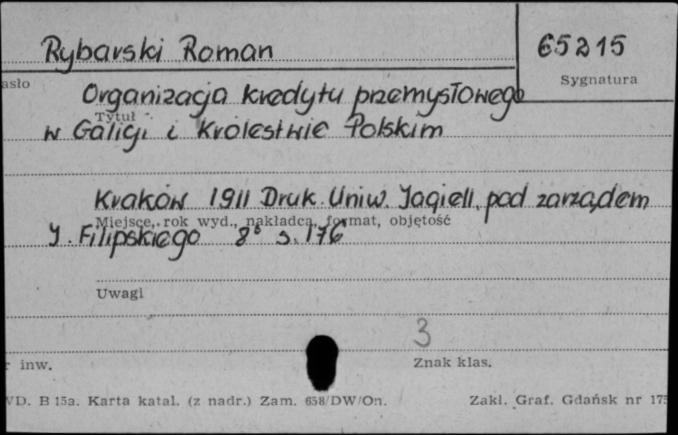 Rybarski Roman
65215
asło
Sygnatura
Organizacja kredytu przemysłowego
Tytuł
w Galicji i Królestwie Polskim
Kraków 1911 Druk. Uniw. Jagiell. pod zarządem
Miejsce, rok wyd., nakładca, format, objętość
J. Filipskiego 8° s. 176
Uwagi
3
r inw.
Znak klas.
WD. B 15a. Karta katal. (z nadr.) Zam. 658/DW/On.
Zakł. Graf. Gdańsk nr 175